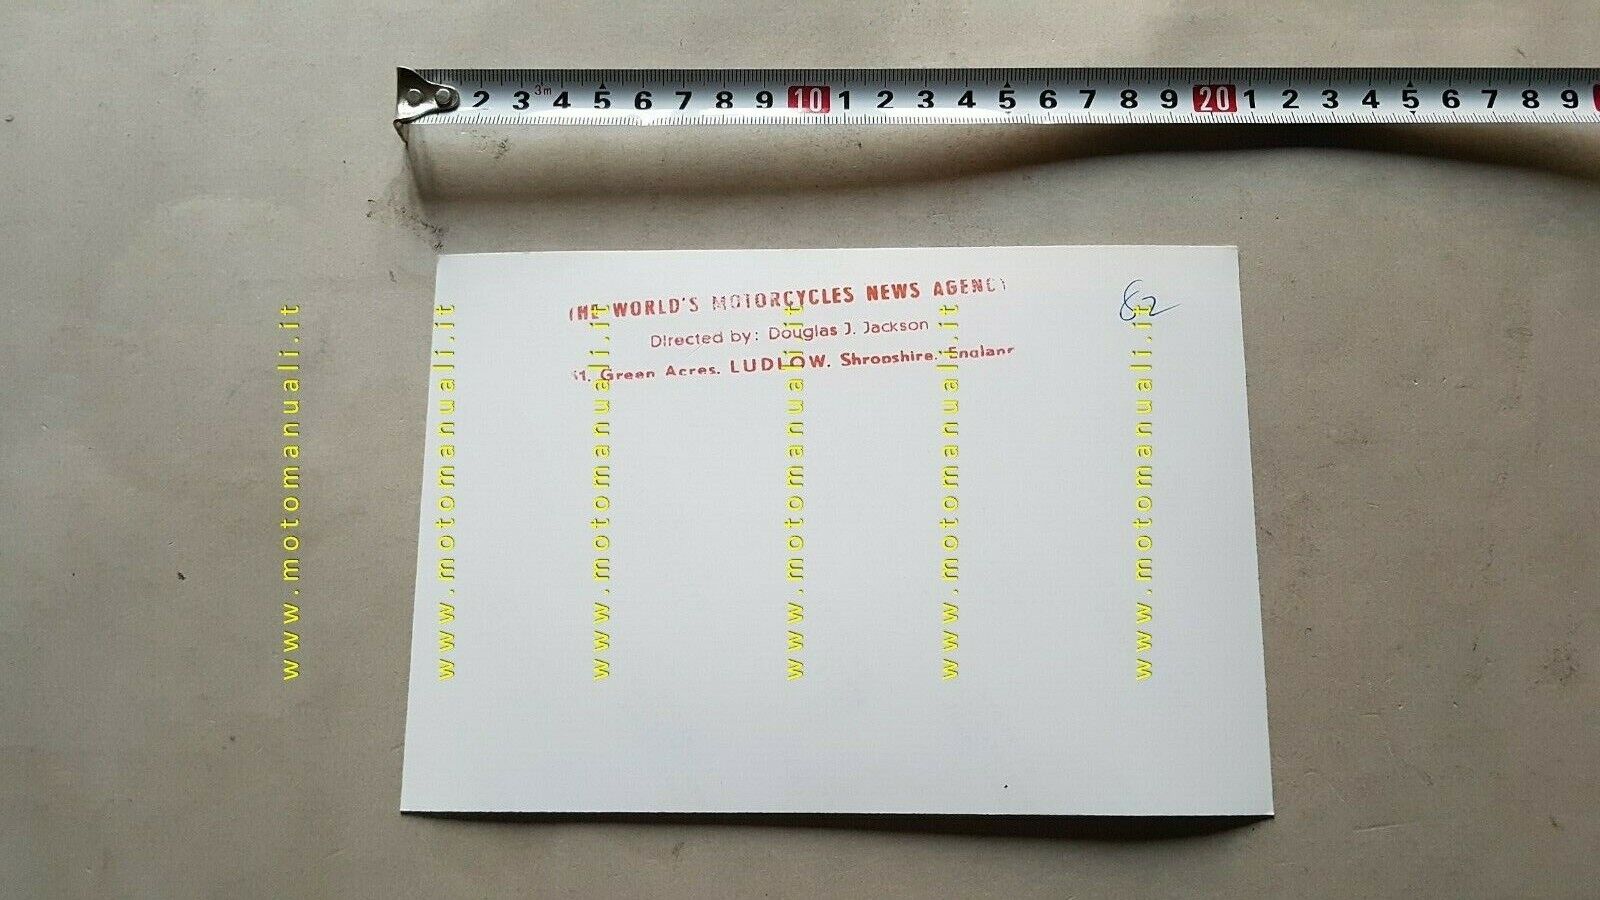 2 3 3m 4 5 6 7 8 9 10 1 2 3 4 5 6 7 8 9 20 1 2 3 4 5 6 7 8 9
THE WORLD'S MOTORCYCLES NEWS AGENCY
82
Directed by: Douglas J. Jackson
Green Acres, LUDLOW, Shropshire, England
www.motomanuali.it
www.motomanuali.it
www.motomanuali.it
www.motomanuali.it
www.motomanuali.it
www.motomanuali.it